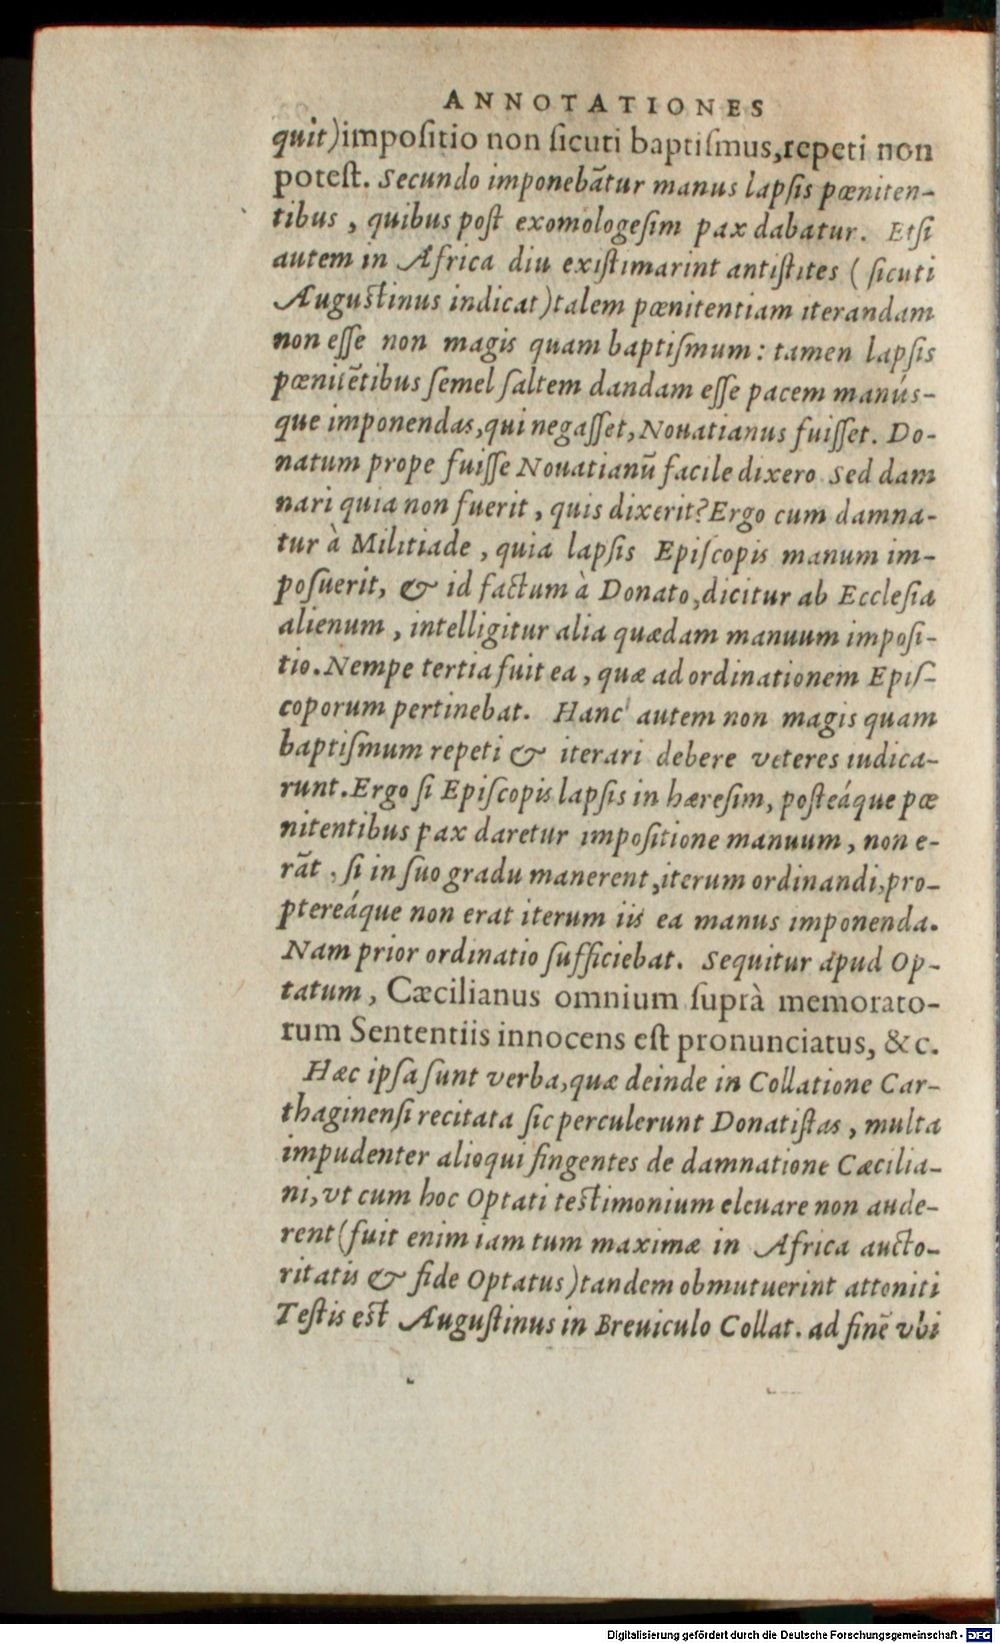 ANNOTATIONES
quit)impoſitio non ſicuti baptiſmus,repeti non
poteſt. Secundo imponebātur manus lapſis pœniten-
tibus, quibus poſt exomologeſim pax dabatur. Etſi
autem in Africa diu exiſtimarint antiſtites (ſicuti
Auguſtinus indicat)talem pœnitentiam iterandam
non eſſe non magis quam baptiſmum: tamen lapſis
pœnitētibus ſemel ſaltem dandam eſſe pacem manús-
que imponendas,qui negaſſet, Nouatianus fuiſſet. Do-
natum prope fuiſſe Nouatianū facile dixero Sed dam
nari quia non fuerit, quis dixerit? Ergo cum damna-
tur à Militiade, quia lapſis Epiſcopis manum im-
poſuerit, & id factum à Donato,dicitur ab Eccleſia
alienum, intelligitur alia quædam manuum impoſi-
tio. Nempe tertia fuit ea, quæ ad ordinationem Epiſ-
coporum pertinebat. Hanc autem non magis quam
baptiſmum repeti & iterari debere veteres iudica-
runt. Ergo ſi Epiſcopis lapſis in hæreſim, poſteáque pœ
nitentibus pax daretur impoſitione manuum, non e-
rāt, ſi in ſuo gradu manerent,iterum ordinandi,pro-
ptereáque non erat iterum iis ea manus imponenda.
Nam prior ordinatio ſufficiebat. Sequitur apud Op-
tatum, Cæcilianus omnium ſuprà memorato-
rum Sententiis innocens eſt pronunciatus, &c.
Hæc ipſa ſunt verba,quæ deinde in Collatione Car-
thaginenſi recitata ſic perculerunt Donatiſtas, multa
impudenter alioqui fingentes de damnatione Cæcilia-
ni, vt cum hoc Optati teſtimonium eleuare non aude-
rent(fuit enim iam tum maximæ in Africa aucto-
ritatis & fide Optatus)tandem obmutuerint attoniti
Teſtis eſt Auguſtinus in Breuiculo Collat. ad finē vbi
Digitalisierung gefördert durch die Deutsche Forschungsgemeinschaft - DFG